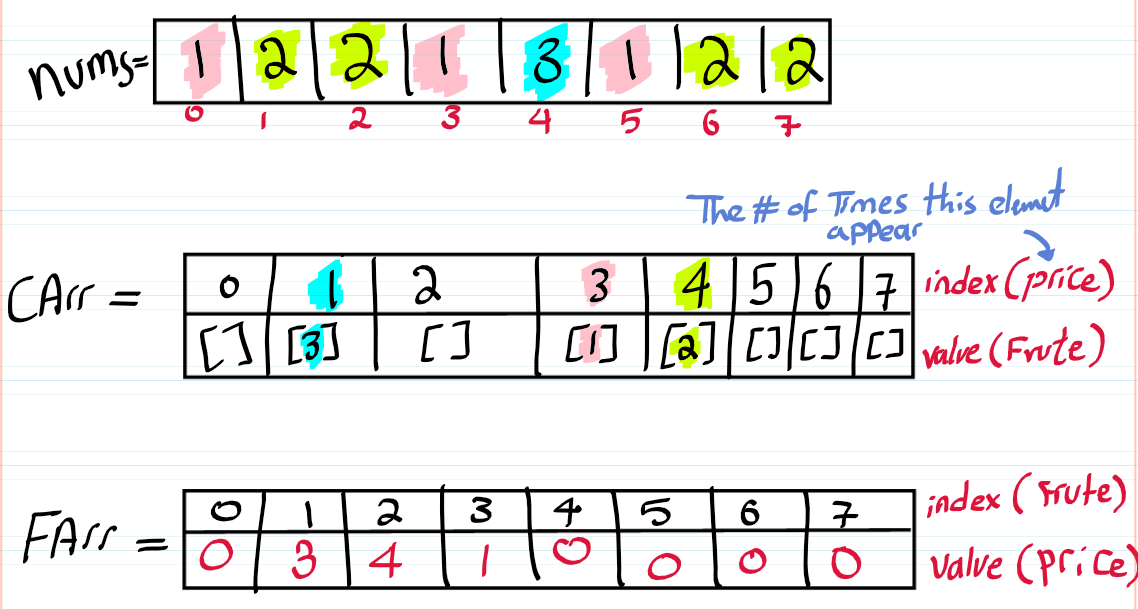 nums= 1 2 2 1 3 1 2 2
0 1 2 3 4 5 6 7
The # of Times this elemet
appear
CArr = 0 1 2 3 4 5 6 7 index (price)
[] [3] [] [1] [2] [] [] [] value (Frute)
FArr = 0 1 2 3 4 5 6 7 index (Frute)
0 3 4 1 0 0 0 0 value (price)